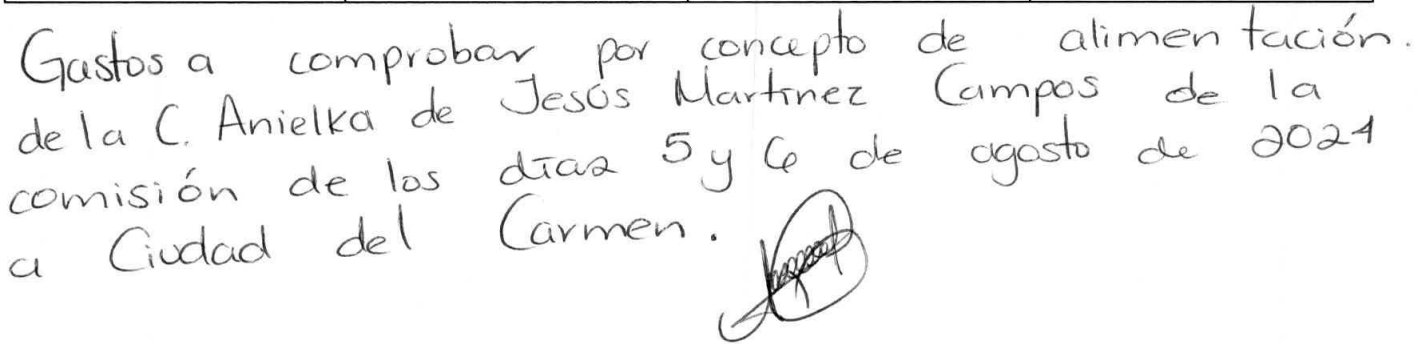 Gastos a comprobar por concepto de alimentación.
de la C. Anielka de Jesús Martínez Campos de la
comisión de los días 5 y 6 de agosto de 2024
a Ciudad del Carmen.